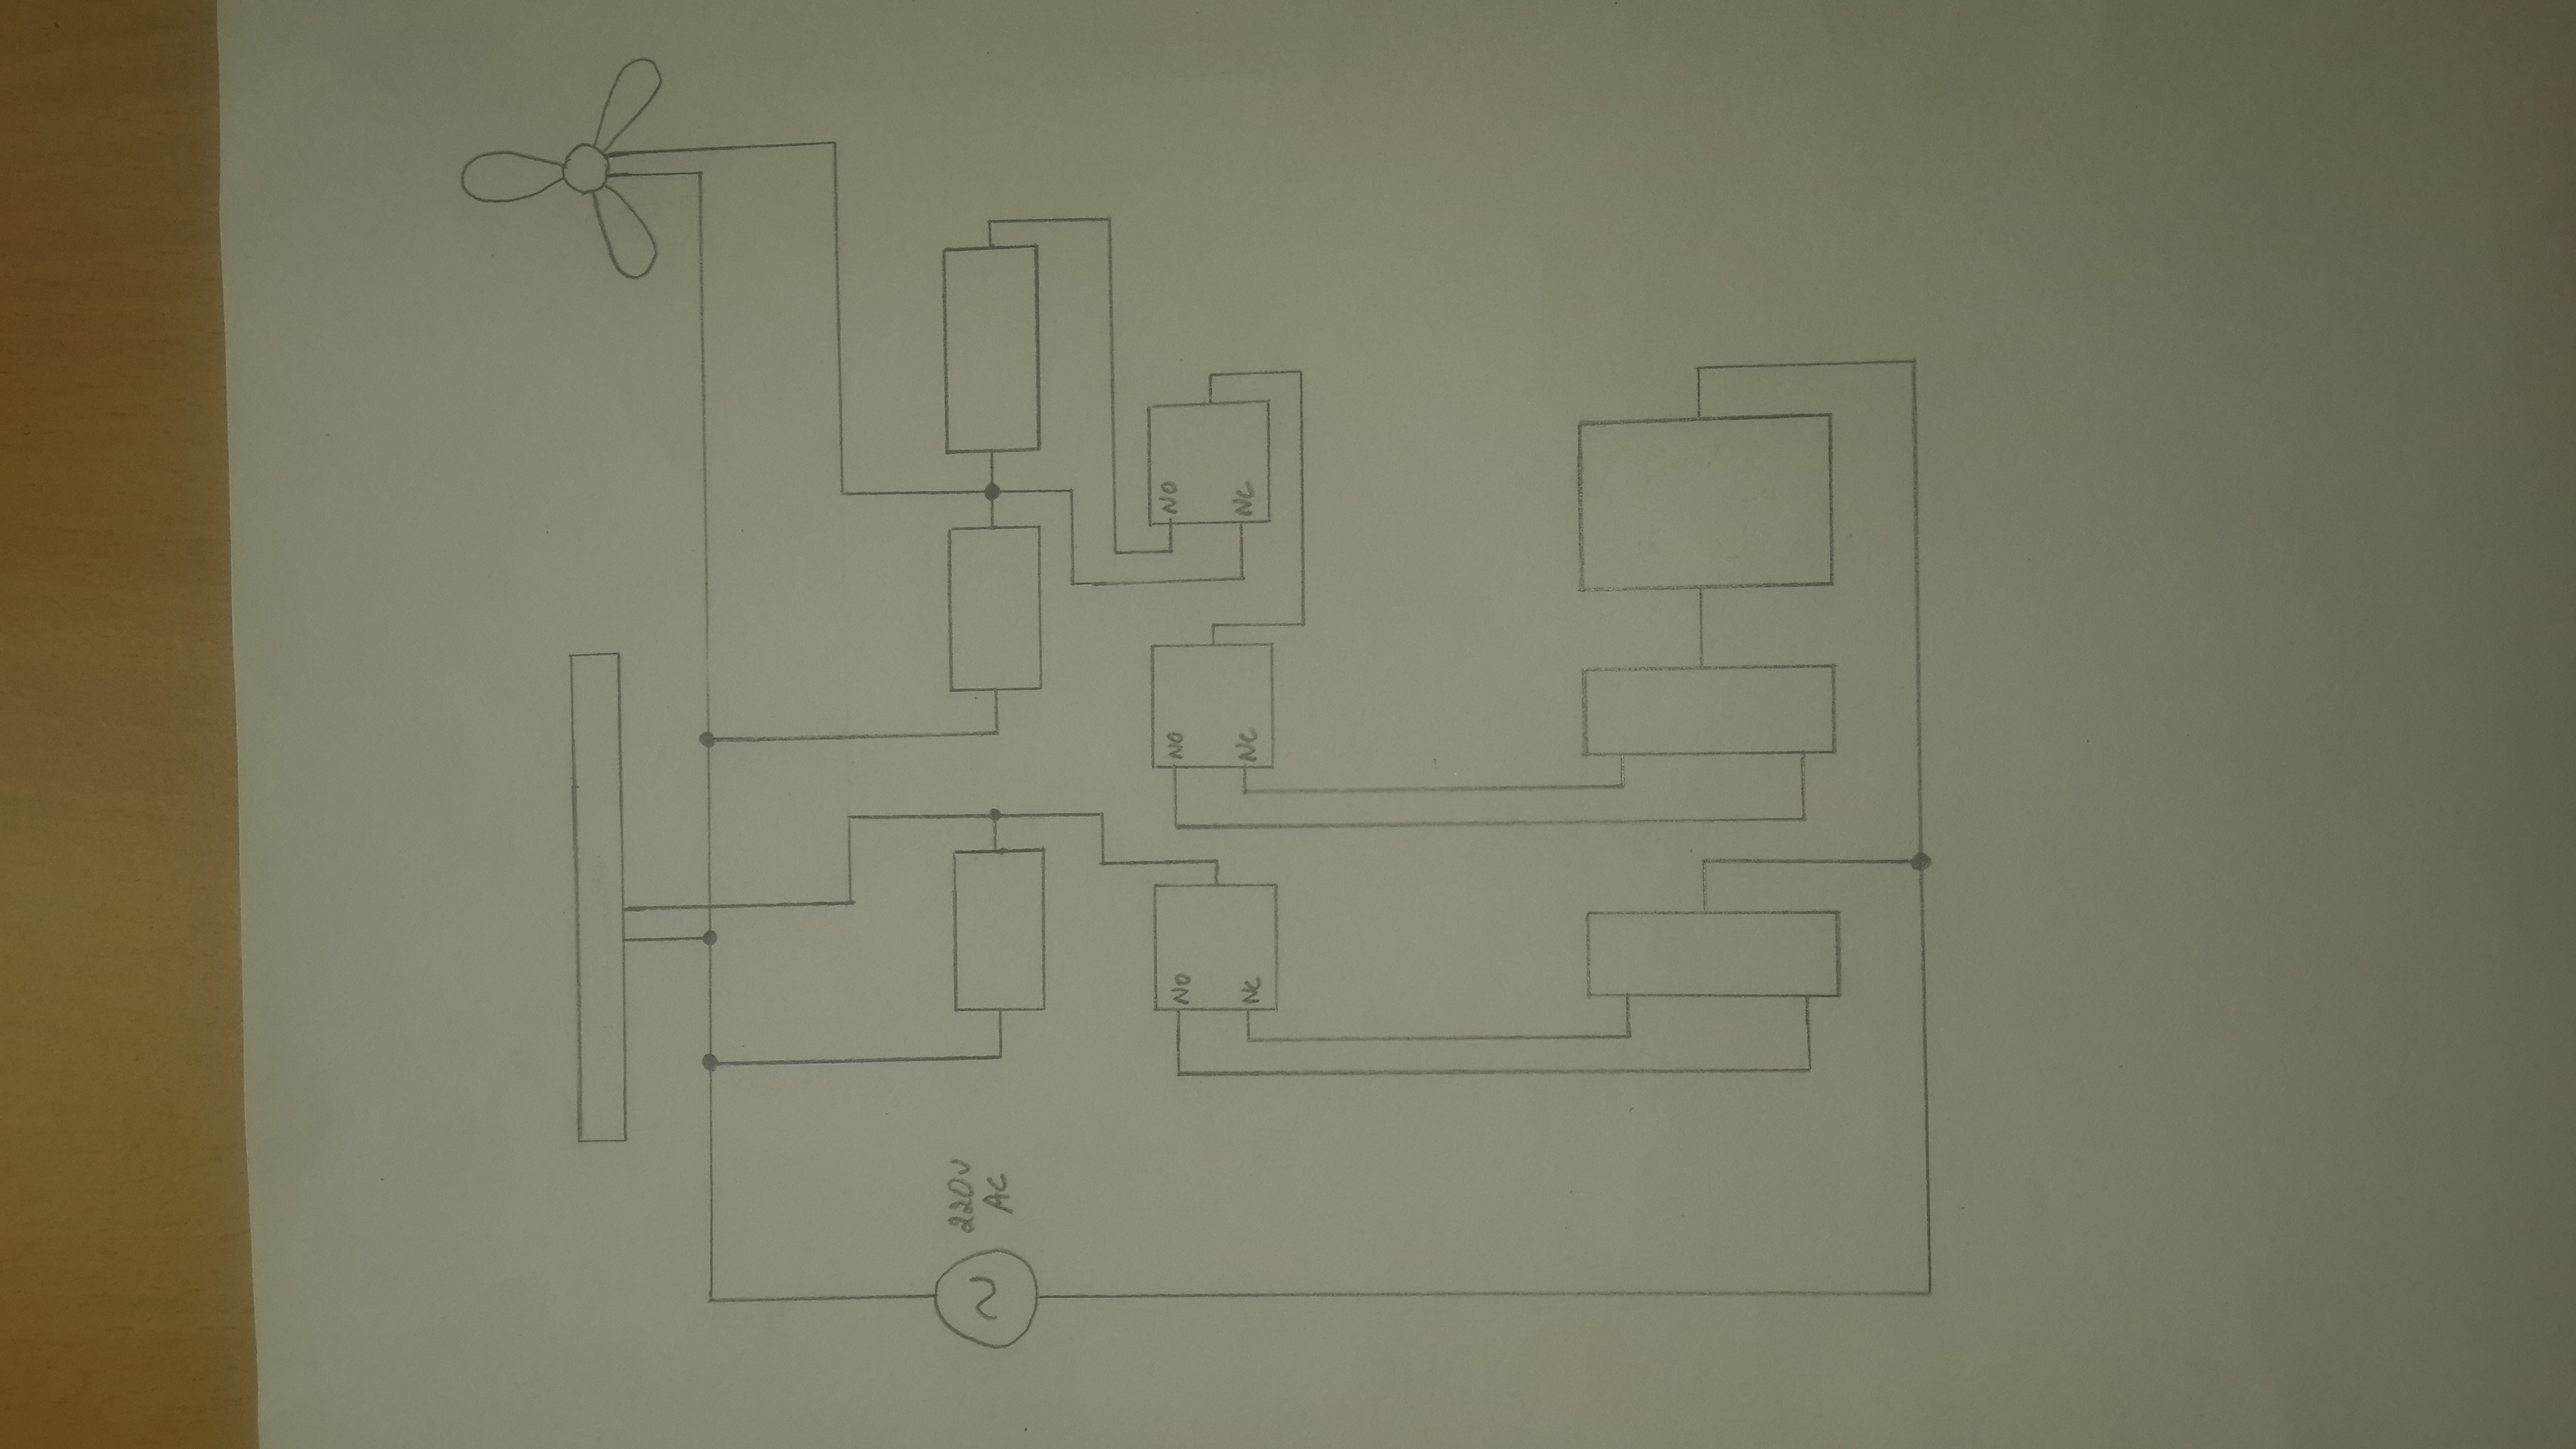 220v
AC
NO
NC
NO
NC
NO
NC